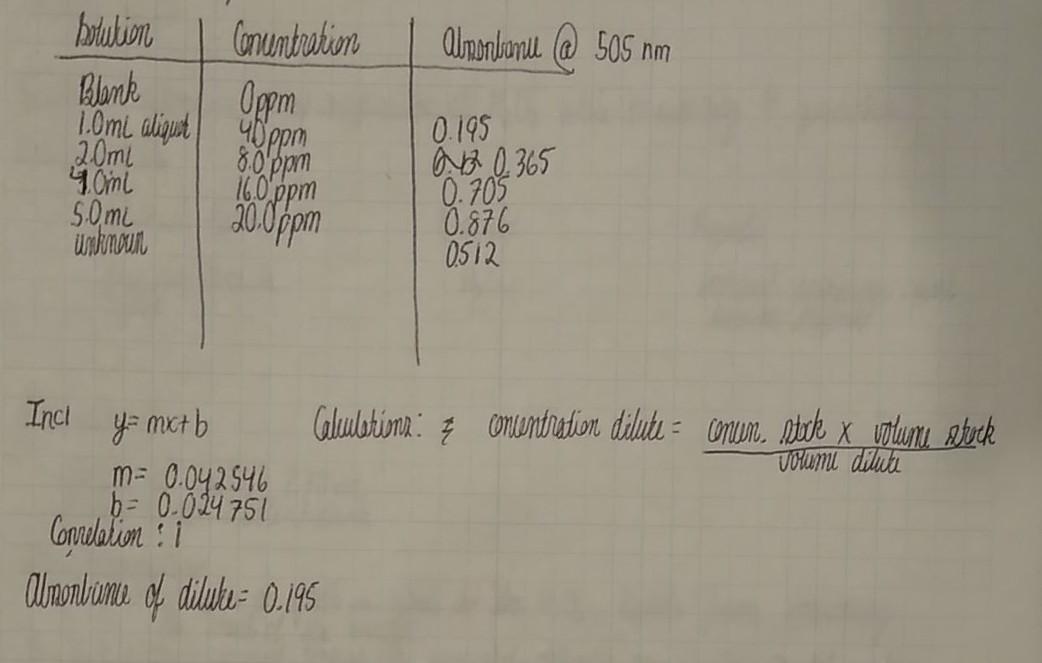 Solution Concentration Absorbance @ 505 nm
Blank 0ppm
1.0mL aliquot 4.0ppm 0.195
2.0mL 8.0ppm 0.365
4.0mL 16.0ppm 0.705
5.0mL 20.0ppm 0.876
unknown 0.512
Incl y=mx+b Calculations: concentration dilute = concen. stock x volume stock
volume dilute
m= 0.042546
b= 0.024751
Correlation : 1
Absorbance of dilute= 0.195